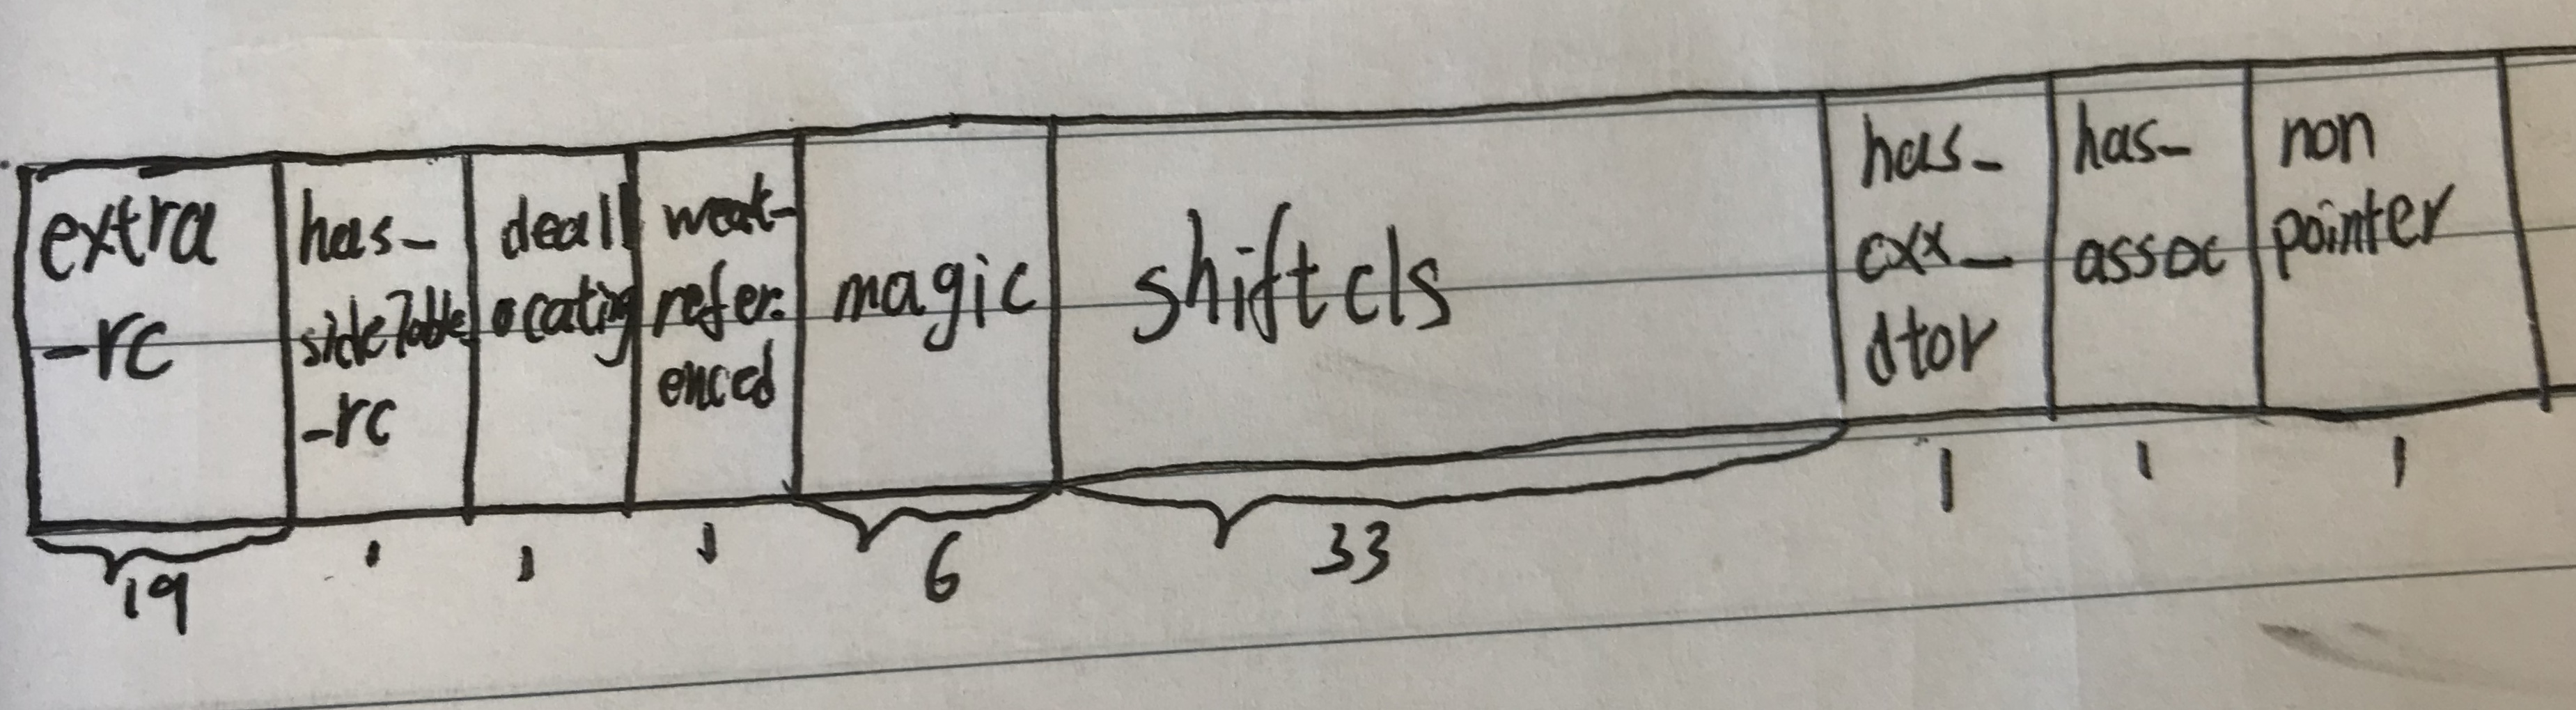 extra
-rc
has-
sideTable
-rc
deall
ocating
weak-
refer-
enced
magic
shiftcls
has-
cxx_
dtor
has-
assoc
non
pointer
19
1
1
1
6
33
1
1
1